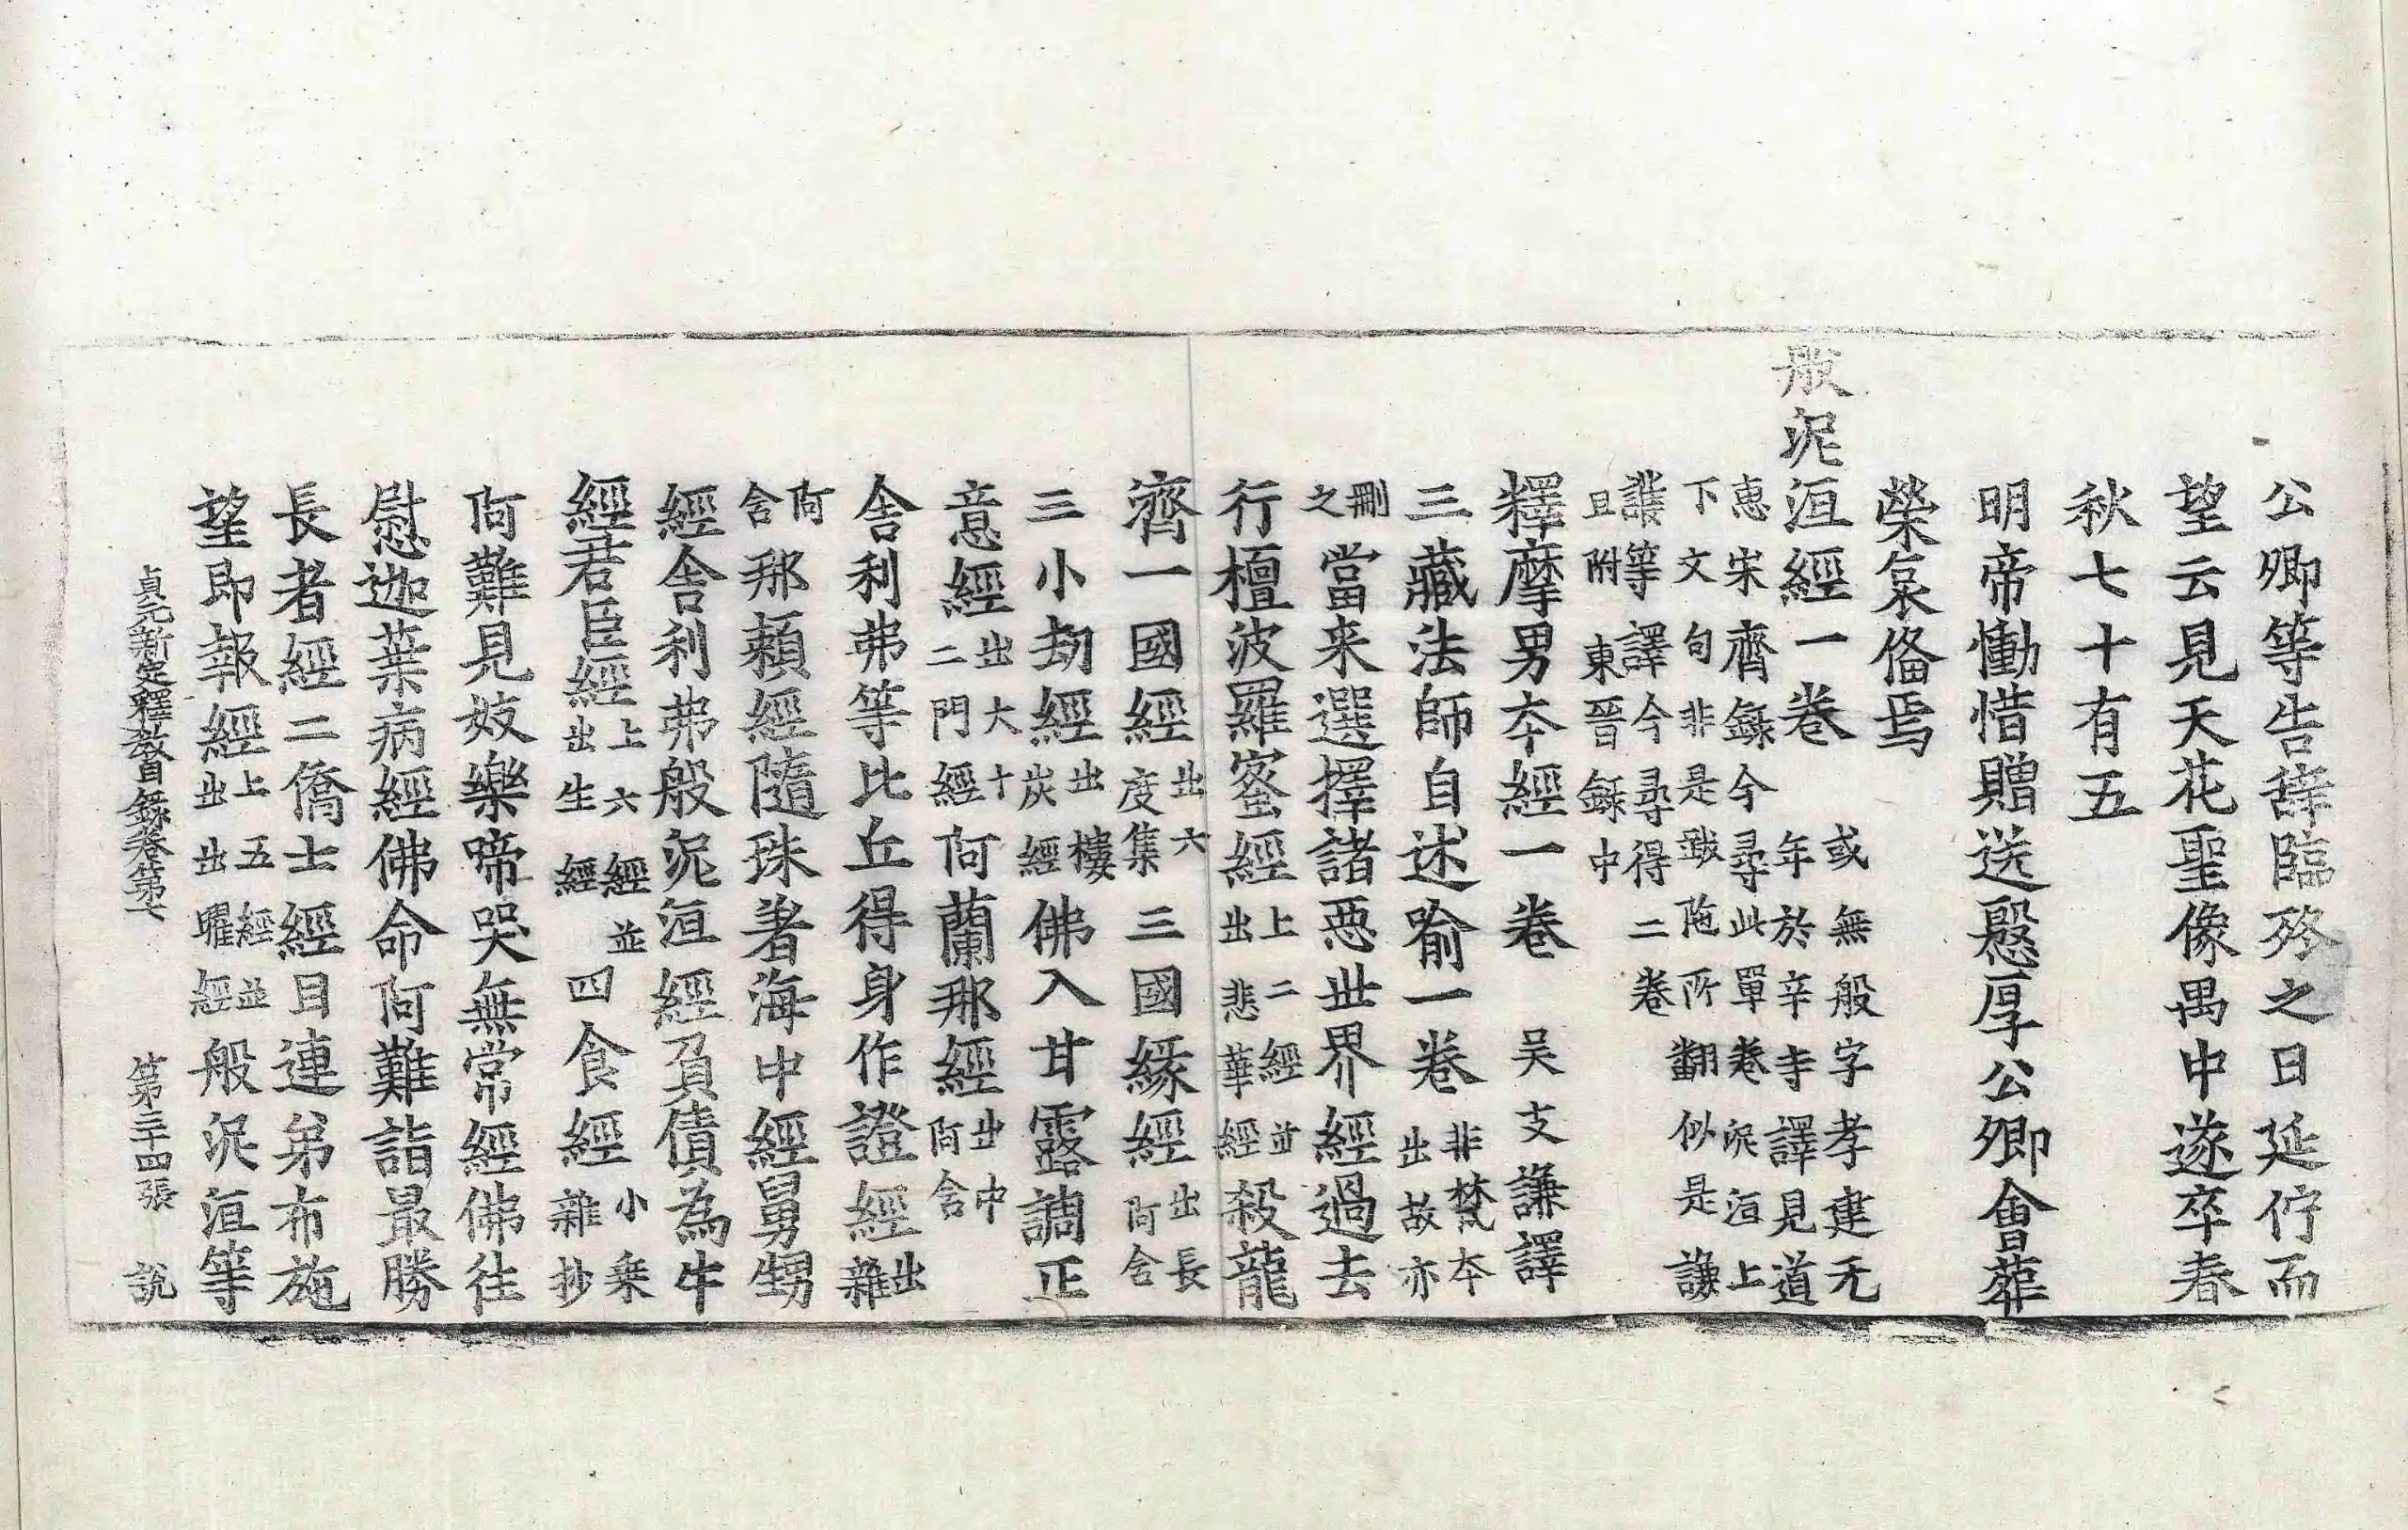 公卿等告辝臨終之日延佇而
望云見天花聖像禺中遂卒春
秋七十有五
明帝慟惜贈送慇厚公卿會葬
榮哀俻焉
般泥洹經一卷或無般字孝建元年於辛寺譯見道
惠宋齊錄今尋此單卷泥洹上下文句非是跋陁所翻似是謙
讖等譯今尋得二卷且附東晉錄中
釋摩男夲經一卷 吴支謙譯
三藏法師自述喻一卷非梵夲出故亦
刪之當来選擇諸惡世界經過去
行檀波羅蜜經上二經並出悲華經殺龍
濟一國經出六度集三國緣經出長阿含
三小劫經出樓炭經佛入甘露調正
意經出大十二門經阿蘭那經出中阿含
舍利弗等比丘得身作證經出雜
阿含那頼經隨珠著海中經舅甥
經舍利弗般泥洹經負債為牛
經君臣經上六經並出生經四食經小乗雜抄
阿難見妓樂啼哭無常經佛往
慰迦葉病經佛命阿難詣最勝
長者經二僑士經目連弟布施
望即報經上五經並出出曜經般泥洹等
貞元新定釋教目錄卷第七 第三十四張 說